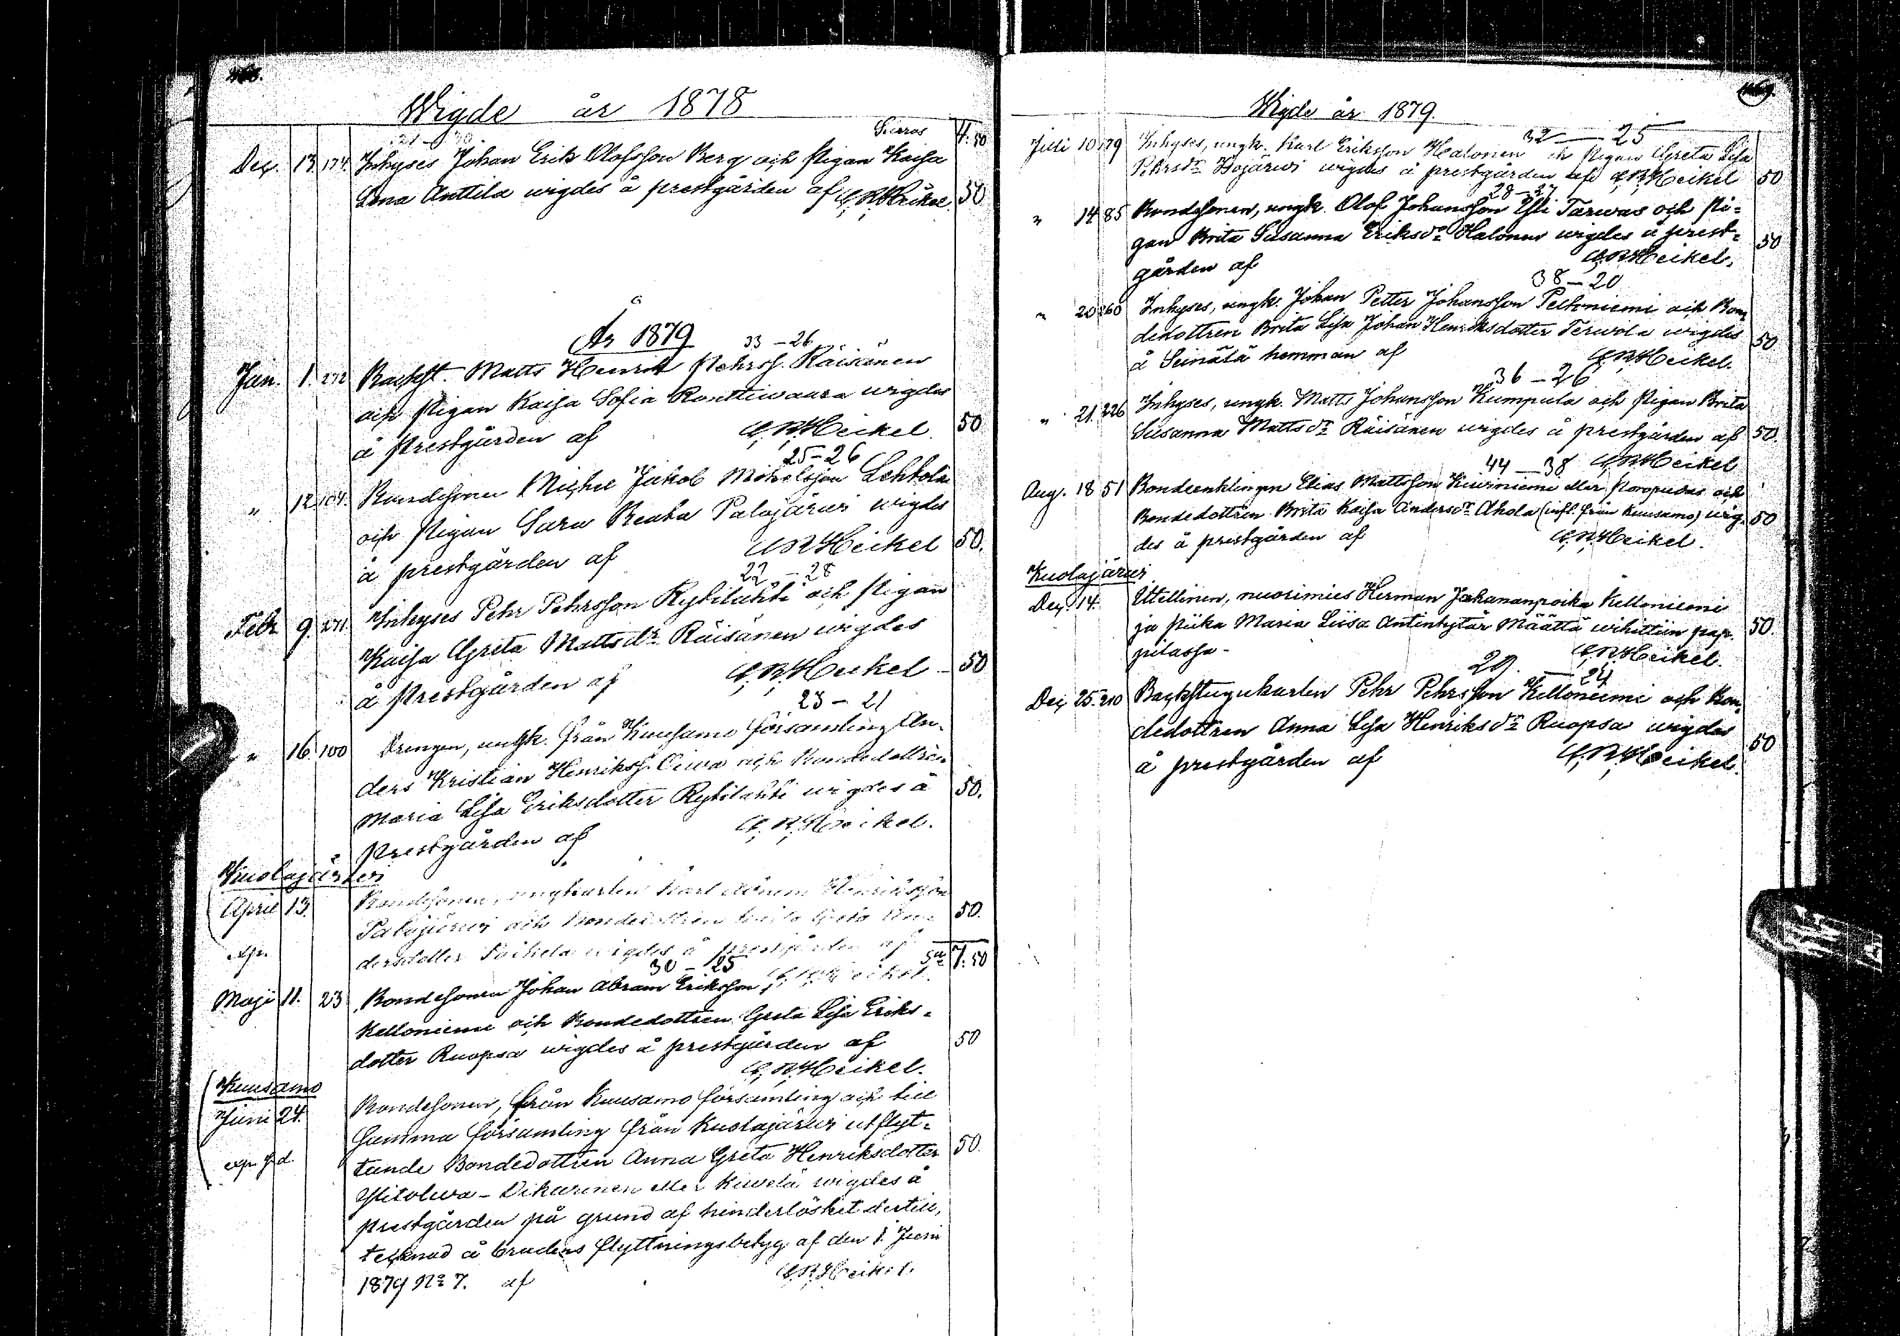 Wigde år 1878
Transp. 4:50
Dec. 13. 174. Inhyses Johan Erik Olofsson Berg och Pigan Kaisa
Lena Anttila wigdes å prestgården af C. R. Heikel. 50
År 1879
33 – 26
Jan. 1. 272 Backst. Matts Henrik Pehrss. Räisänen
och Pigan Kaisa Sofia Ronttiwaara wigdes
å Prestgården af C. R. Heikel. 50
25 – 26
" 12. 104. Bondesonen Michel Jakob Michelsson Lehtola
och Pigan Sara Beata Palojärwi wigdes
å prestgården af C. R. Heikel 50.
22 – 28
Febr. 9. 271. Inhyses Pehr Pehrsson Kytilahti och Pigan
Kaisa Greta Mattsdr. Räisänen wigdes
å Prestgården af C. R. Heikel – 50
23 – 21
" 16. 100 Drengen, ungk. från Kuusamo församling An-
ders Kristian Henrikss. Oiwa och Bondedottren
Maria Lisa Eriksdotter Kytilahti wigdes å
prestgården af C. R. Heikel. 50.
Kuolajärwi
April 13. Bondesonen, ungkarlen Karl Henriksson
Palojärwi och Bondedottren Greta An-
dersdotter wigdes å prestgården af 50.
30 – 25 C. R. Heikel. Sa 7:50
Maji 11. 23 Bondesonen Johan Abram Eriksson
Kelloniemi och Bondedottren Greta Lisa Eriks-
dotter Ruopsa wigdes å prestgården af 50
C. R. Heikel.
Kuusamo
Juni 24. Bondesonen, från Kuusamo församling och till
samma församling från Kuolajärwi utflyt-
tande Bondedottren Anna Greta Henriksdotter 50.
eller wigdes å
prestgården på grund af hinderlöshet dertill,
tecknad å brudens flyttningsbetyg af den 1 Juni
1879 No 7. af C. R. Heikel.
Wigde år 1879.
32 – 25
Juli 10 179 Inhyses, ungk. Karl Eriksson Halonen och Pigan Greta Lisa
Pehrsdr. Hojärwi wigdes å prestgården af C. R. Heikel 50
28 – 27
" 14 85 Bondesonen, ungk. Olof Johansson Yli Tarwas och Pi-
gan Brita Susanna Eriksdr. Halonen wigdes å prest-
gården af C. R. Heikel. 50
38 – 20
" 20 260 Inhyses, ungk. Johan Petter Johansson Peltoniemi och Bon-
dedottren Brita Lisa Johan Henriksdotter Terwola wigdes
å Seinälä hemman af C. R. Heikel. 50
36 – 26
" 21. 226 Inhyses, ungk. Matts Johansson Kumpula och Pigan Brita
Susanna Mattsdr. Räisänen wigdes å prestgården af 50.
44 – 38 C. R. Heikel
Aug. 18 51 Bondeenklingen Elias Mattsson Kiurniemi eller Poropudas och
Bondedottren Brita Kaisa Andersdr. Ahola (infl. från Kuusamo) wig-
des å prestgården af C. R. Heikel. 50
Kuolajärwi
Dec. 14. Ittellinen, nuorimies Herman Juhananpoika Kelloniemi
ja Piika Maria Liisa Antintytär Määttä wihittiin pap-
pilassa – C. R. Heikel. 50
29. – 24
Dec. 25. 210 Backstugukarlen Pehr Pehrsson Kelloniemi och Bon-
dedottren Anna Lisa Henriksdr. Ruopsa wigdes
å prestgården af C. R. Heikel. 50